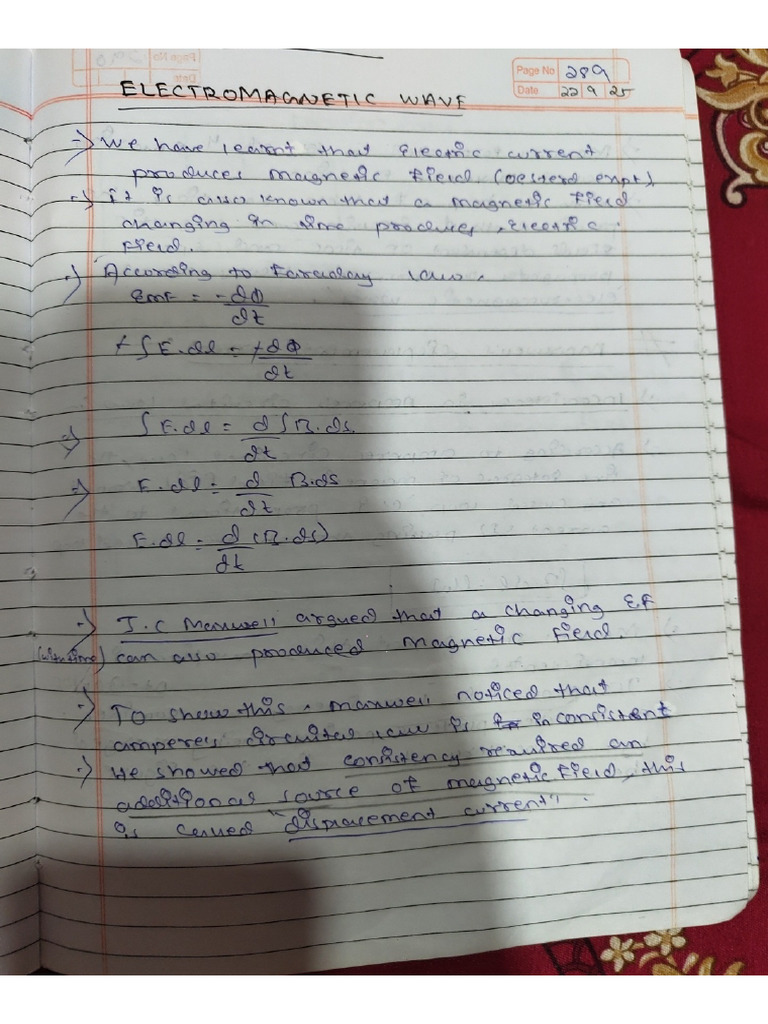 Page No 289
Date 22 9 25
ELECTROMAGNETIC WAVE
→ We have learnt that Electric current
produces magnetic Field (oesterd expt)
→ it is also known that a magnetic Field
changing in time produces Electric
Field.
→ According to Faraday law,
Emf = -dΦ/dt
+∫E.dl = +dΦ/dt
→ ∫E.dl = d/dt ∫B.ds
→ E.dl = d/dt B.ds
E.dl = d/dt (B.ds)
→ J.C Maxwell argued that a changing EF
(with time) can also produced Magnetic Field.
→ To show this, maxwell noticed that
ampere's circuital law is inconsistent
→ He showed that consistency required an
additional source of magnetic Field, this
is called "displacement current".